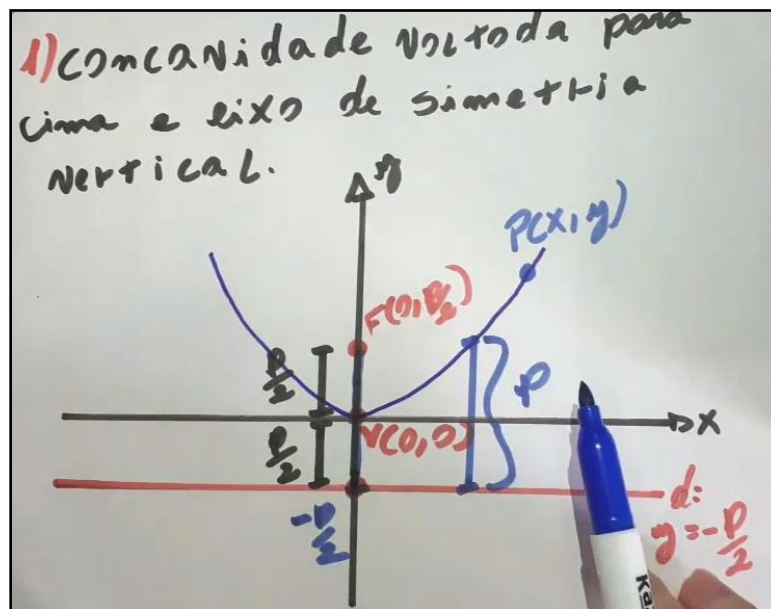 1) concavidade voltada para
cima e eixo de simetria
vertical.
y
P(x, y)
F(0, P/2)
P/2
P
x
P/2
V(0, 0)
d:
-P/2
y = -P/2
Ka